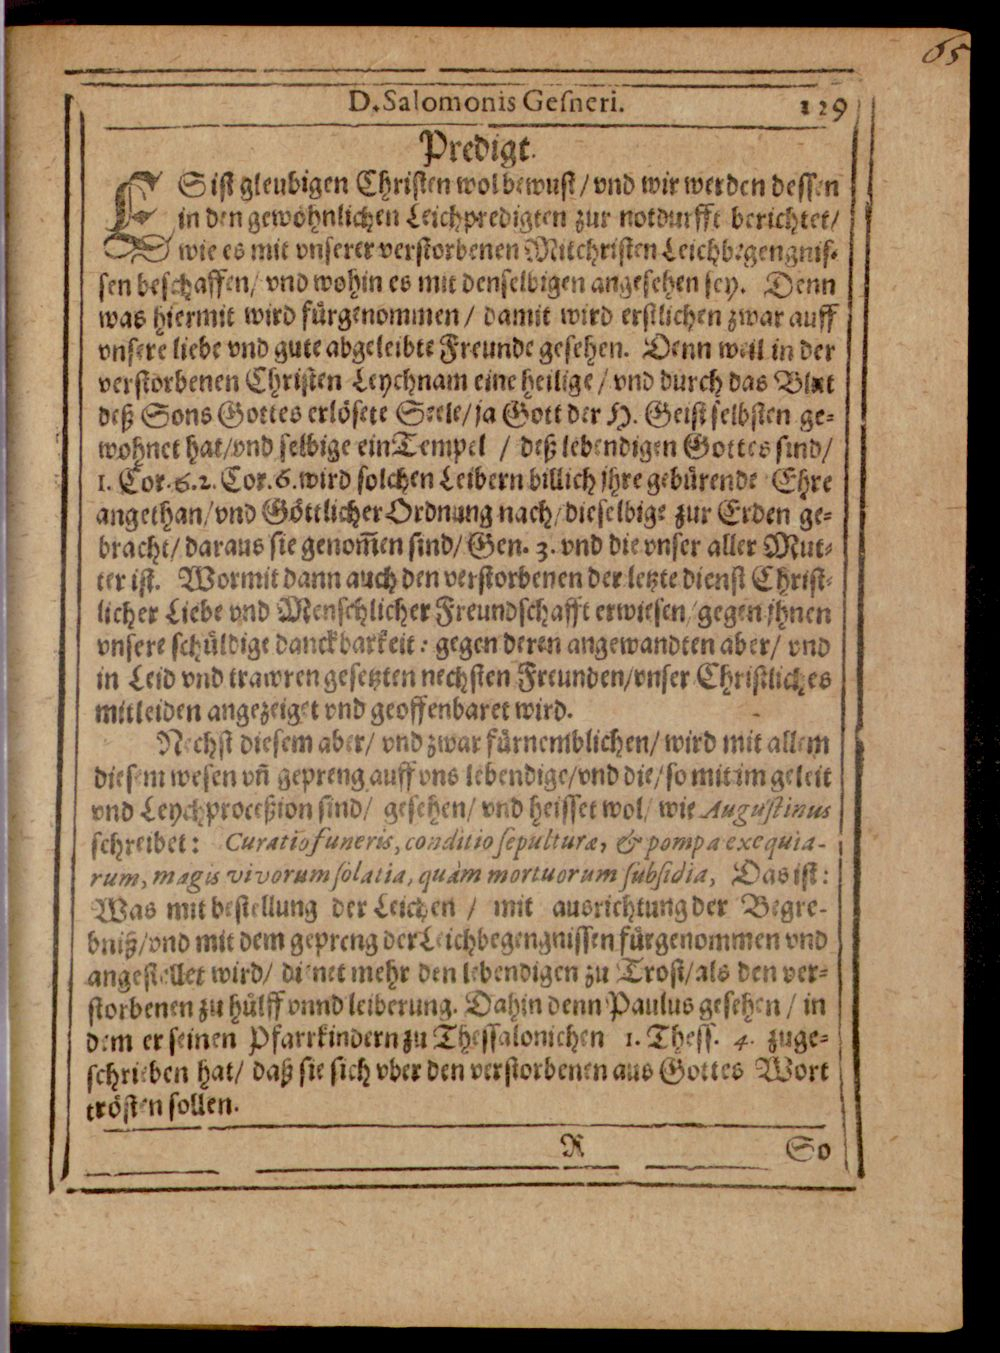 65
D. Salomonis Geſneri. 129
Predigt.
ES iſt gleubigen Chriſten wol bewuſt / vnd wir werden deſſen
in den gewöhnlichen Leichpredigten zur notdurfft berichtet /
wie es mit vnſerer verſtorbenen Mitchriſten Leichbegengniſ⸗
ſen beſchaffen / vnd wohin es mit denſelbigen angeſehen ſey. Denn
was hiermit wird fürgenommen / damit wird erſtlichen zwar auff
vnſere liebe vnd gute abgeleibte Freunde geſehen. Denn weil in der
verſtorbenen Chriſten Leychnam eine heilige / vnd durch das Blut
deß Sons Gottes erlöſete Seele / ja Gott der H. Geiſt ſelbſten ge⸗
wohnet hat / vnd ſelbige ein Tempel / deß lebendigen Gottes ſind /
1. Cor. 6. 2. Cor. 6. wird ſolchen Leibern billich jhre gebürende Ehre
angethan / vnd Göttlicher Ordnung nach / dieſelbige zur Erden ge⸗
bracht / daraus ſie genom̃en ſind / Gen. 3. vnd die vnſer aller Mut⸗
ter iſt. Wormit dann auch den verſtorbenen der letzte dienſt Chriſt⸗
licher Liebe vnd Menſchlicher Freundſchafft erwieſen / gegen jhnen
vnſere ſchüldige danckbarkeit : gegen deren angewandten aber / vnd
in Leid vnd trawren geſetzten nechſten Freunden / vnſer Chriſtliches
mitleiden angezeiget vnd geoffenbaret wird.
Nechſt dieſem aber / vnd zwar fürnemblichen / wird mit allem
dieſem weſen vñ gepreng auff vns lebendige / vnd die / ſo mit im geleit
vnd Leychproceßion ſind / geſehen / vnd heiſſet wol / wie Auguſtinus
ſchreibet : Curatio funeris, conditio ſepulturæ, & pompa exequia-
rum, magis vivorum ſolatia, quàm mortuorum ſubſidia, Das iſt :
Was mit beſtellung der Leichen / mit ausrichtung der Begre⸗
bniß / vnd mit dem gepreng der Leichbegengniſſen fürgenommen vnd
angeſtellet wird / dienet mehr den lebendigen zu Troſt / als den ver⸗
ſtorbenen zu hülff vnnd leiberung. Dahin denn Paulus geſehen / in
dem er ſeinen Pfarrkindern zu Theſſalonichen 1. Theſſ. 4. zuge⸗
ſchrieben hat / daß ſie ſich vber den verſtorbenen aus Gottes Wort
tröſten ſollen.
R So